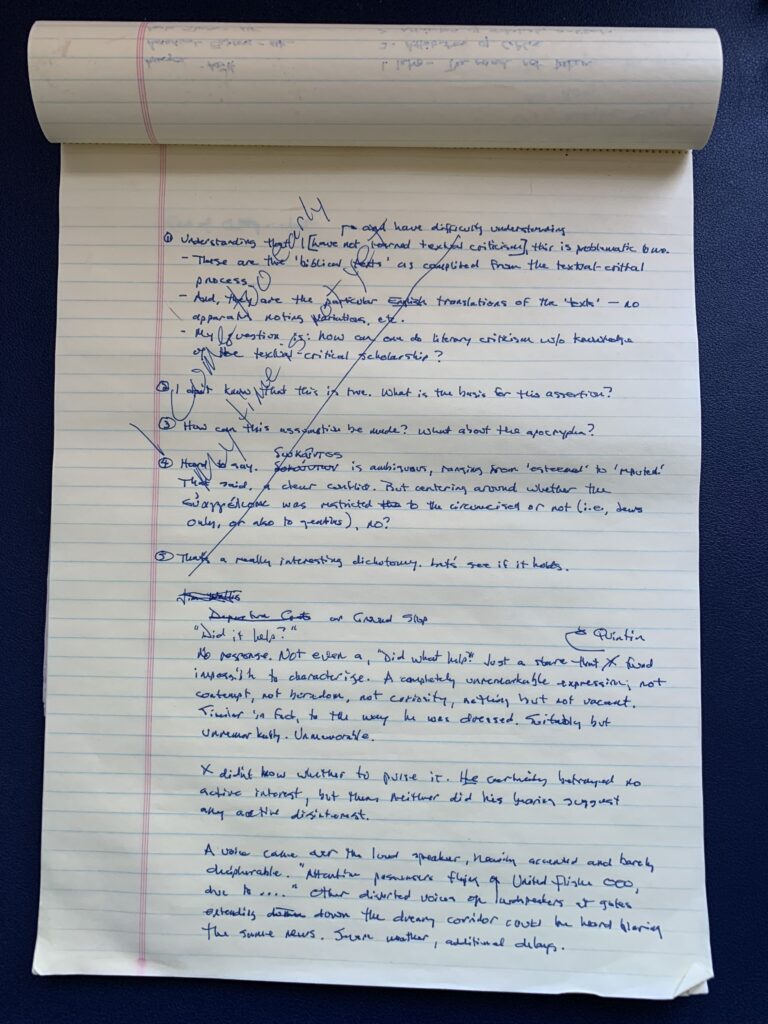 1. Intro - The road not taken
2. Attributes of
→ and have difficulty understanding
① Understanding that I [have not learned textual criticism], this is problematic to me.
- These are the 'biblical texts' as compiled from the textual-critical
process.
- And, they are the particular English translations of the 'texts' — no
apparatus noting variations, etc.
- My question is: how can one do literary criticism w/o knowledge
of the textual-critical scholarship?
② I don't know that this is true. What is the basis for this assertion?
③ How can this assumption be made? What about the apocrypha?
④ Hard to say. δοκοῦντος
is ambiguous, ranging from 'esteemed' to 'reputed'
That said, a clear conflict. But centering around whether the
was restricted to the circumcised or not (i.e., Jews
only, or also to gentiles), no?
⑤ That's a really interesting dichotomy. Let's see if it holds.
I
early
my time
Jim Wallis
Departure Gate or Ground Stop
"Did it help?"
Quintin
No response. Not even a, "Did what help?" Just a stare that X found
impossible to characterize. A completely unremarkable expression; not
contempt, not boredom, not curiosity, nothing but not vacant.
Similar in fact, to the way he was dressed. Suitably but
unremarkably. Unmemorable.
X didn't know whether to pursue it. He certainly betrayed no
active interest, but then neither did his bearing suggest
any active disinterest.
A voice came over the loud speaker, heavily accented and barely
decipherable. "Attention passengers flying on United flight 000,
due to ...." Other distorted voices on loudspeakers at gates
extending down down the dreary corridor could be heard blaring
the same news. Severe weather, additional delays.